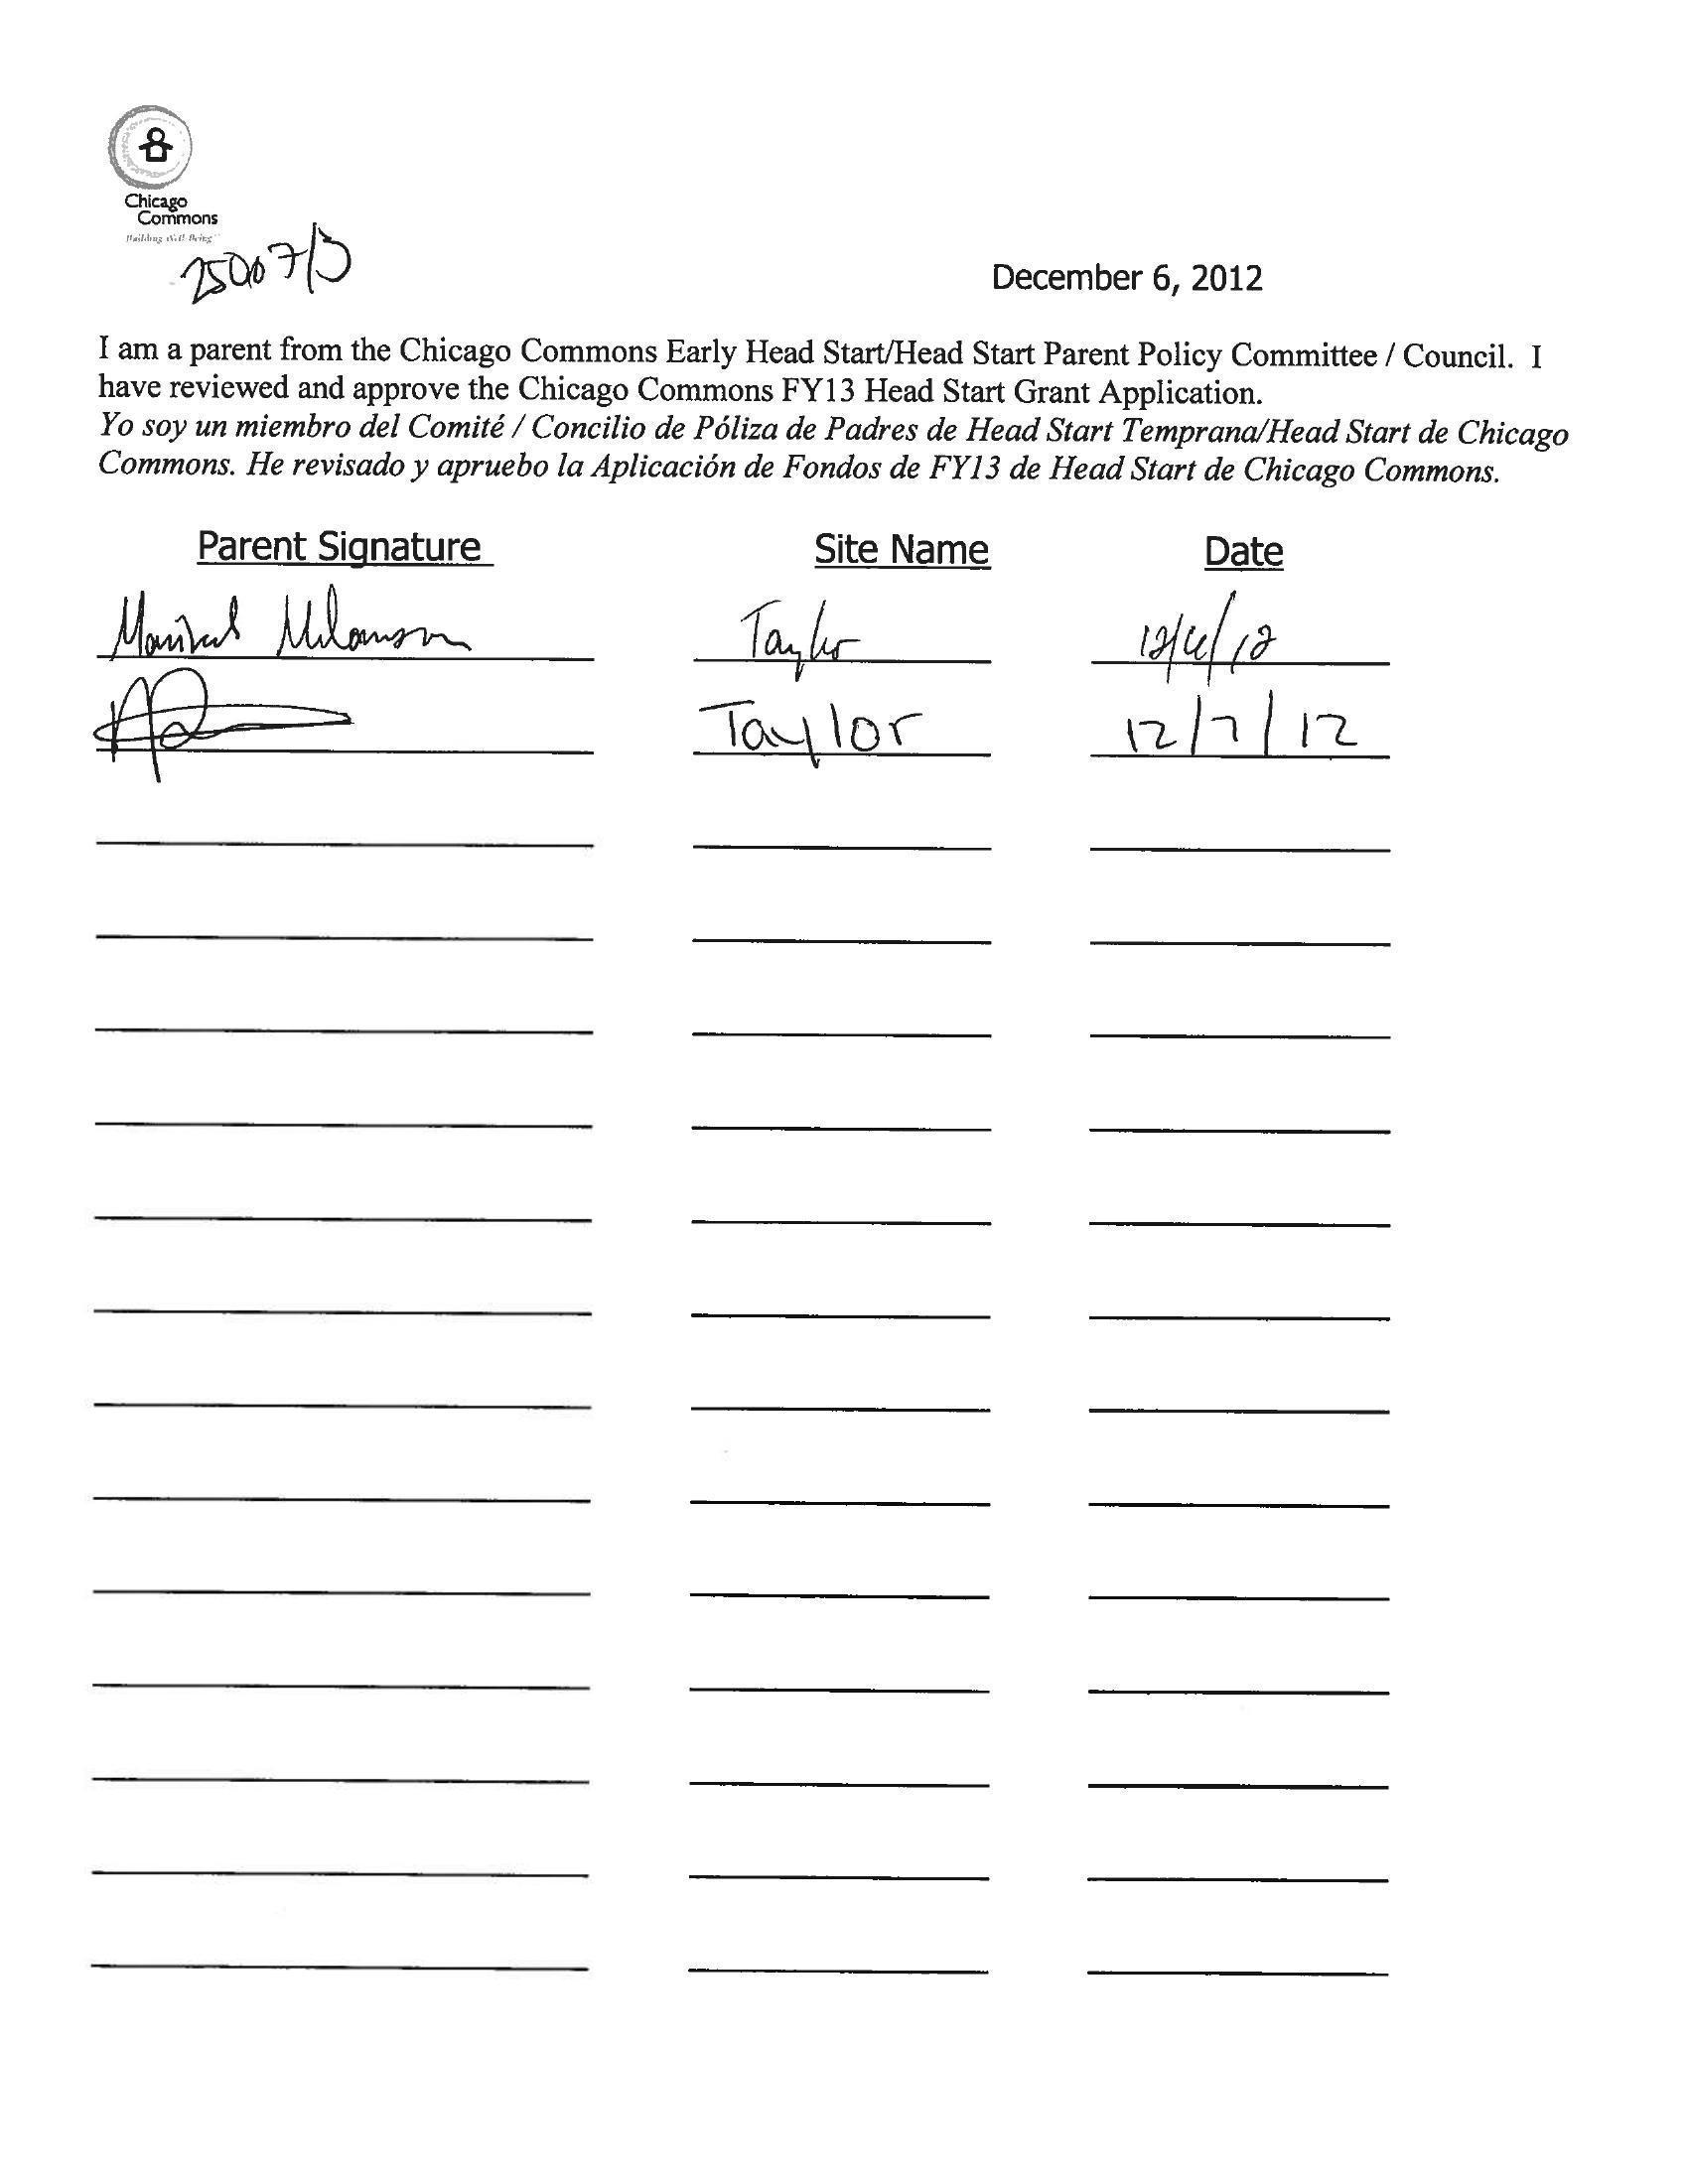 Chicago
Commons
Building Well-Being
December 6, 2012
I am a parent from the Chicago Commons Early Head Start/Head Start Parent Policy Committee / Council. I
have reviewed and approve the Chicago Commons FY13 Head Start Grant Application.
Yo soy un miembro del Comité / Concilio de Póliza de Padres de Head Start Temprana/Head Start de Chicago
Commons. He revisado y apruebo la Aplicación de Fondos de FY13 de Head Start de Chicago Commons.
Parent Signature Site Name Date
Taylor 12/6/12
Taylor 12/7/12